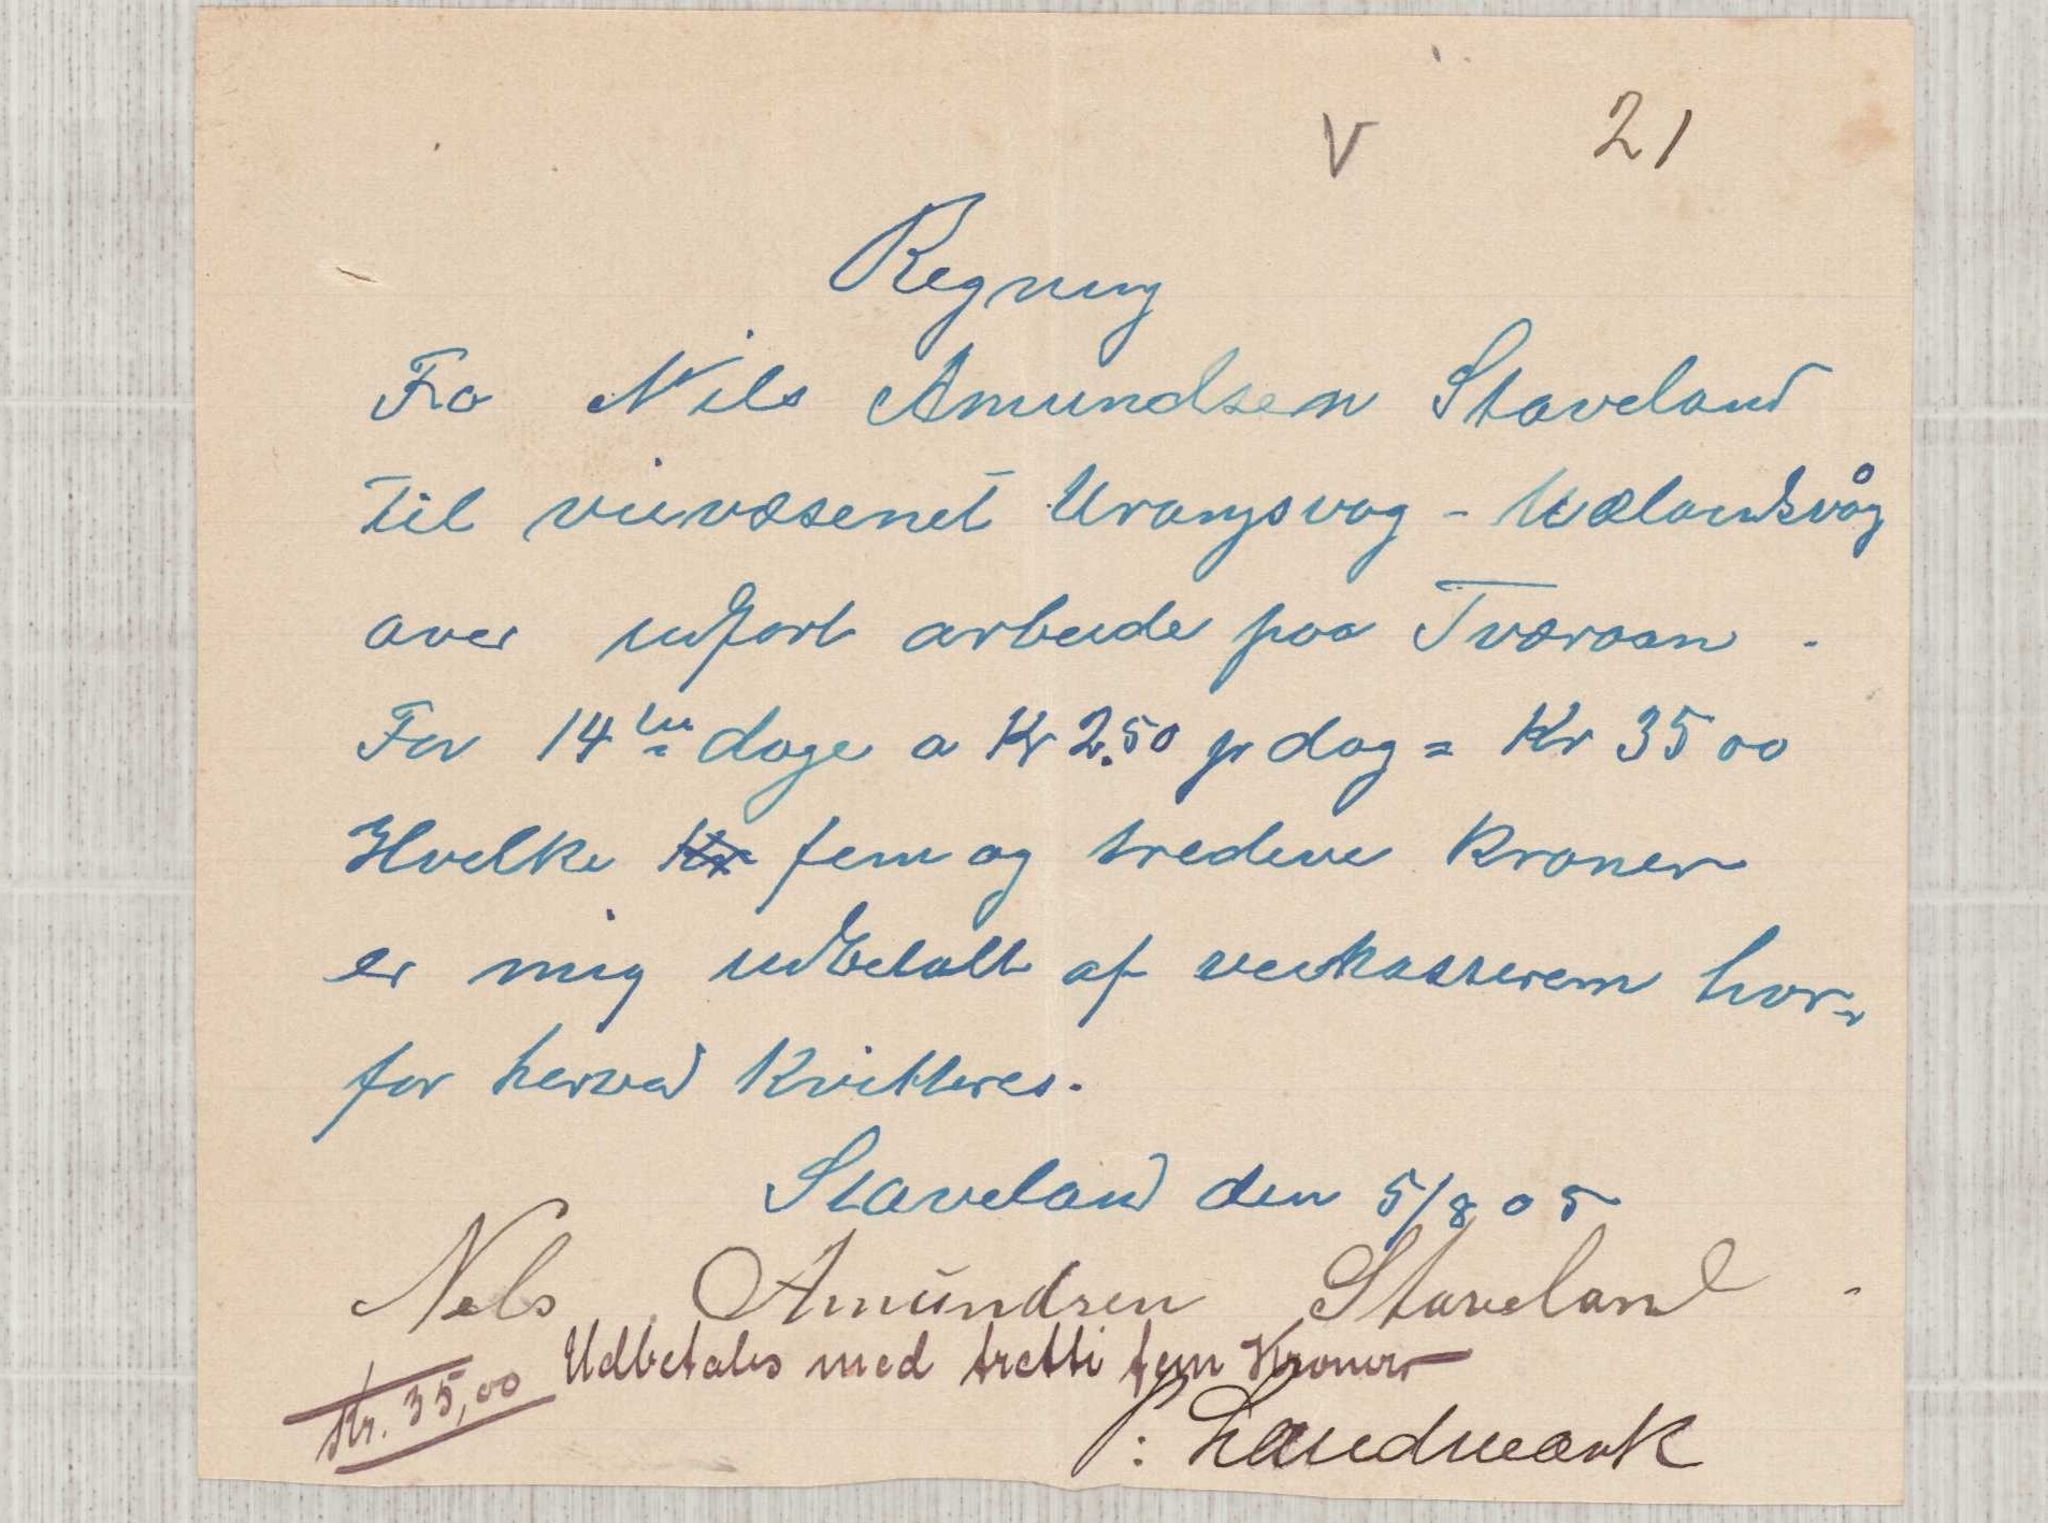 V 21
Regning
Fra Nils Amundsen Staveland
til veivæsenet Urangsvag - Uælandsvåg
over udført arbeide paa Tværaan -
For 14 dage a Kr 2.50 pr dag = Kr 35 00
Hvelke fem og tredeve Kroner
er mig udbetalt af veikasseren hvor-
for herved Kvitteres.
Staveland den 5/8 05
Nels Amundsen Staveland -
Udbetales med tretti fem Kroner
Kr. 35,00
P: Landmark